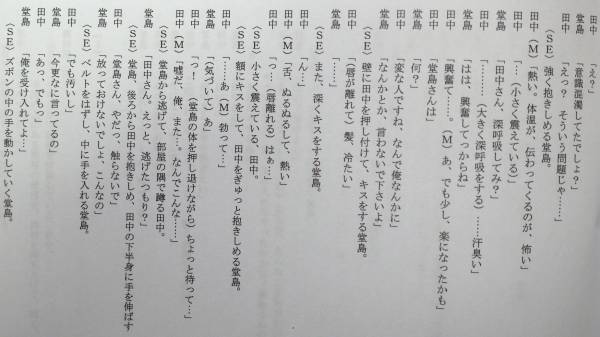 田中　「え？」
堂島　「意識混濁してたでしょ？」
田中　「えっ？　そういう問題じゃ……」
（SE）強く抱きしめる堂島。
田中（M）「熱い。体温が、伝わってくるのが、怖い」
田中　「…（小さく震えている）……」
堂島　「田中さん、深呼吸してみ？」
田中　「………（大きく深呼吸をする）……汗臭い」
堂島　「はは、興奮してっからね」
田中　「興奮て……。（M）あ、でも少し、楽になったかも」
田中　「堂島さんは」
堂島　「何？」
田中　「変な人ですね。なんで俺なんかに」
堂島　「なんかとか、言わないで下さいよ」
（SE）壁に田中を押し付けて、キスをする堂島。
田中　「………」
堂島　「（唇が離れて）髪、冷たい」
田中　「……」
（SE）また、深くキスをする堂島。
田中　「ん…」
田中（M）「舌、ぬるぬるして、熱い」
田中　「っ…（唇離れる）はぁ…」
（SE）小さく震えている、田中。
（SE）額にキスをして、田中をぎゅっと抱きしめる堂島。
田中　「……あ（M）勃って…」
堂島　「（気づいて）あ」
田中　「っ！　（堂島の体を押し退けながら）ちょっと待って…」
田中（M）「嘘だ、俺、また…。なんでこんな……」
（SE）堂島から逃げて、部屋の隅で蹲る田中。
堂島　「田中さん。えっと、逃げたつもり？」
（SE）堂島、後ろから田中を抱きしめ、田中の下半身に手を伸ばす
田中　「堂島さん、やだっ、触らないで」
堂島　「放っておけないでしょ、こんなの」
（SE）ベルトをはずし、中に手を入れる堂島。
田中　「でも汚いし」
堂島　「今更なに言ってるの」
田中　「あっ、でもっ」
堂島　「俺を受け入れてよ…」
（SE）ズボンの中の手を動かしていく堂島。